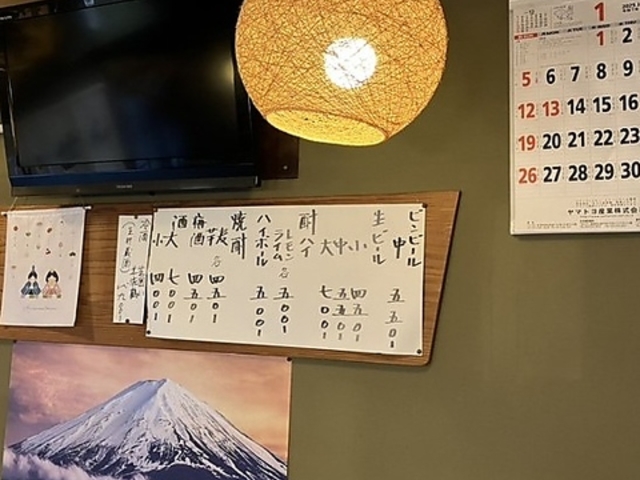 ビンビール 中 五五〇1
生ビール 小 四五〇1
中 五五〇1
大 七〇〇1
酎ハイ
レモン
ライム 各 五〇〇1
ハイボール 五〇〇1
焼酎
麦 各 四五〇1
梅酒 四五〇1
酒 大 七〇〇1
小 四〇〇1
冷酒
TOSHIBA
1
1 2
5 6 7 8 9
12 13 14 15 16
19 20 21 22 23
26 27 28 29 30
ヤマトヨ産業株式会